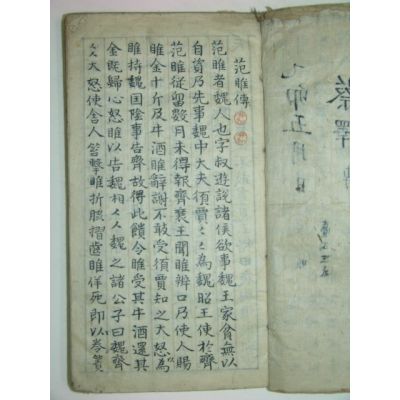 蔡澤
卯五月日
范雎傳
范雎者魏人也字叔遊說諸侯欲事魏王家貧無以
自資乃先事魏中大夫須賈〻〻為魏昭王使於齊
范雎從留數月未得報齊襄王聞雎辨口乃使人賜
雎金十斤及牛酒雎辭謝不敢受須賈知之大怒以為
雎持魏国陰事告齊故得此饋令雎受其牛酒還其
金旣歸心怒雎以告魏相〻〻魏之諸公子曰魏齊
〻〻大怒使舍人笞擊雎折脇摺齒雎佯死即以卷簀